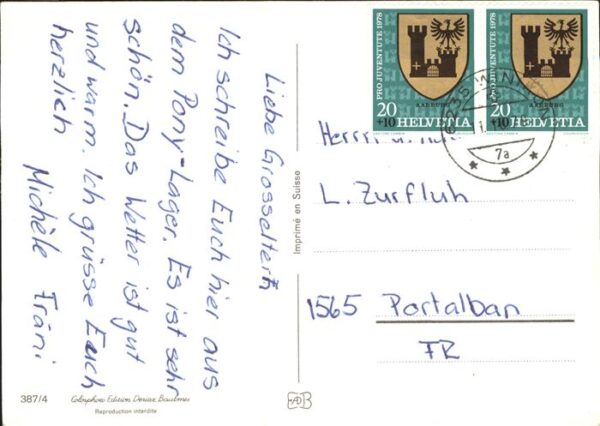 Liebe Grosseltern
Ich schreibe Euch hier aus
dem Pony-Lager. Es ist sehr
schön. Das Wetter ist gut
und warm. Ich grüsse Euch
herzlich
Michèle Träni
387/4
Colorphon Edition Deriaz Baulmes
Reproduction interdite
Imprimé en Suisse
PRO JUVENTUTE 1978
AARBURG
20
+10 HELVETIA
PRO JUVENTUTE 1978
AARBURG
20
+10 HELVETIA
7a
L. Zurfluh
1565 Portalban
FR